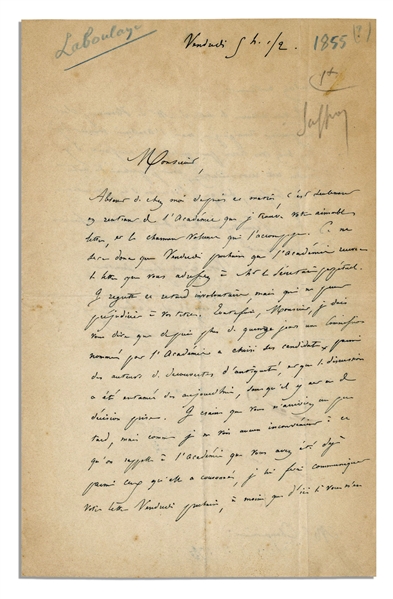 Laboulaye
Vendredi 5 h. 1/2.
1855 (?)
Monsieur,
Absent de chez moi depuis ce matin, c'est seulement
en rentrant de l'Académie que je trouve votre aimable
lettre, et le charmant volume qui l'accompagne. Ce ne
sera donc que Vendredi prochain que l'Académie recevra
la lettre que vous adressez à Mr. le Secrétaire perpétuel.
Je regrette ce retard involontaire, mais qui ne peut
préjudicier à vos titres. Toutefois, Monsieur, je dois
vous dire que depuis plus de quinze jours une Commission
nommée par l'Académie a choisi ses candidats parmi
des auteurs de découvertes d'antiquité, et que la discussion
a été entamée dès aujourd'hui, sans qu'il y ait eu de
décision prise. Je crains que vous n'arriviez un peu
tard, mais comme je ne vois aucun inconvénient à ce
qu'on rappelle à l'Académie que vous avez été déjà
parmi ceux qu'elle a couronnés, je lui ferai communiquer
votre lettre Vendredi prochain, à moins que d'ici là vous n'en